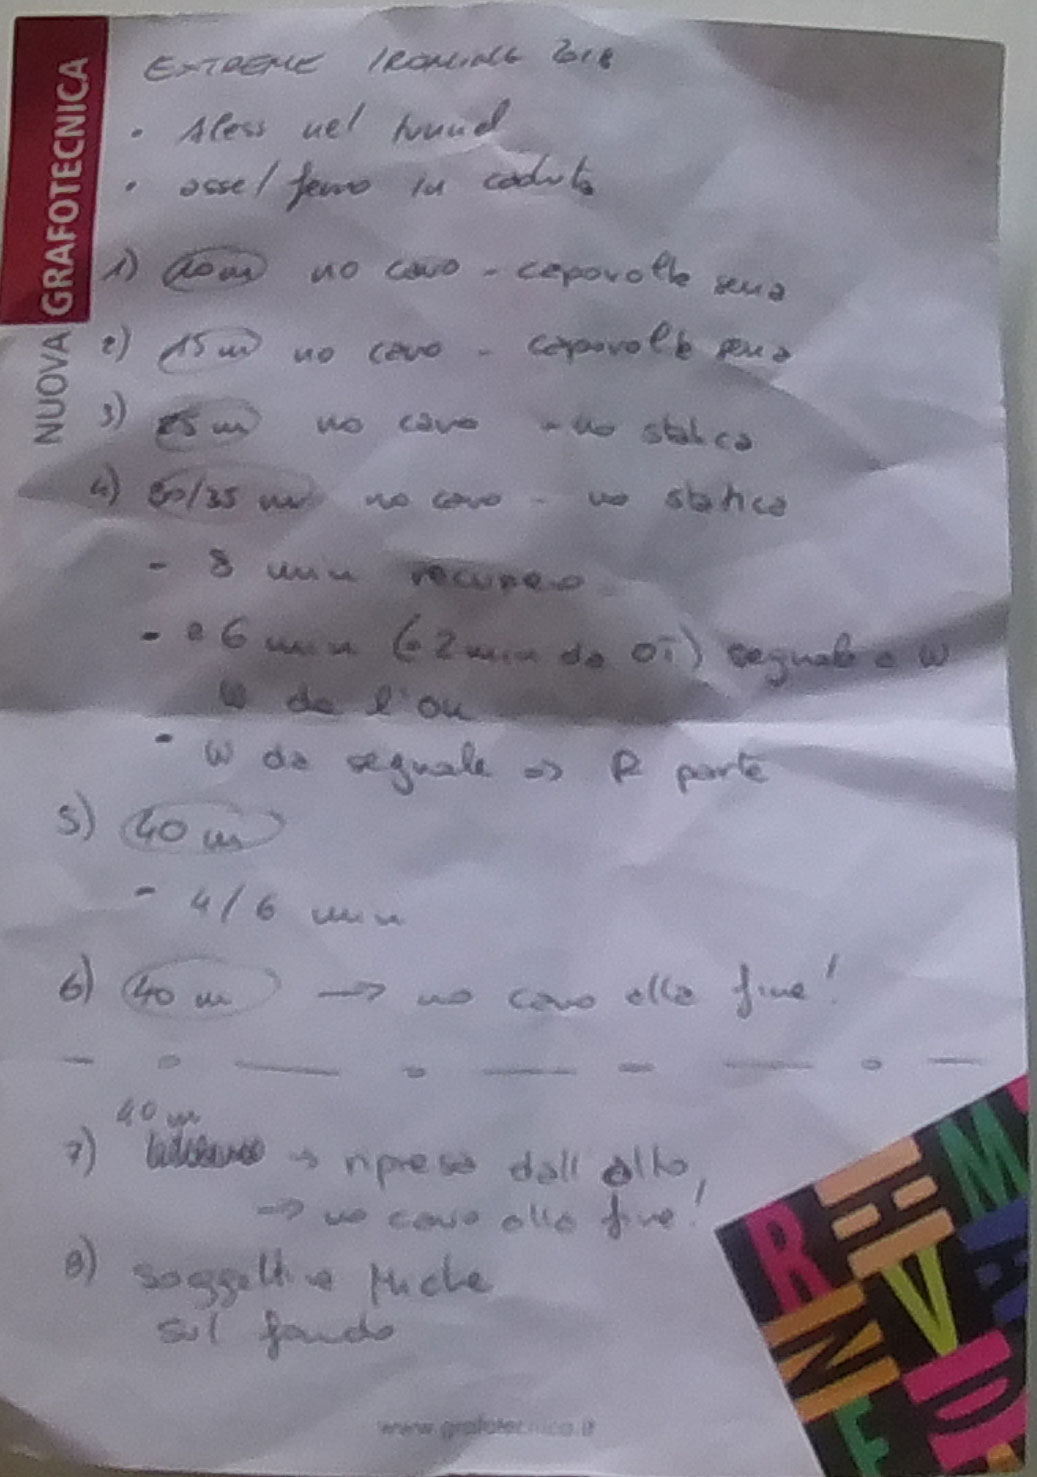 NUOVA GRAFOTECNICA
EXTREME IRONING 2018
• Aless nel tunnel
• asse/ferro in caduta
1) 10 m no cavo - capovolta
2) 15 m no cavo - capovolta
3) 25 m no cavo - no statica
4) 30/35 m no cavo - no statica
- 8 min recupero
- a 6 min (-2 min da OT) segnale a W
W da l'ok
- W da segnale => R parte
5) 40 m
- 4/6 min
6) 40 m → no cavo alla fine!
40 m
7) → ripresa dall'alto,
→ no cavo alla fine!
8) soggettiva Miche
sul fondo
www.grafotecnica.it
R
M
V
N
D
F